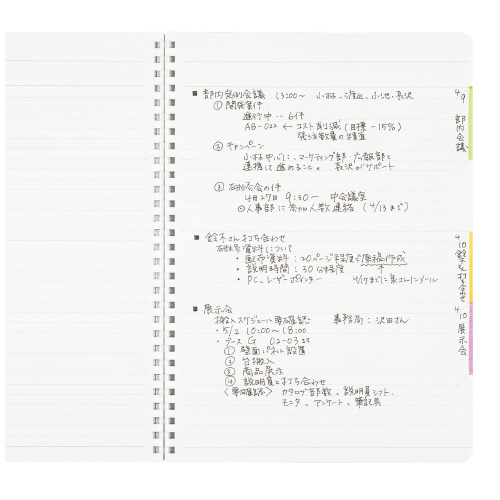 ■ 部内定例会議 13:00〜 小林、渡辺、小池、長沢
① 開発案件
進行中 … 6件
AB-022 ← コスト削減 (目標 -15%)
発注数量の精査
② キャンペーン
小林中心に、マーケティング部・広報部と
連携して進めること。 長沢がサポート
③ 研修会の件
4月27日 9:30〜 中会議室
人事部に参加人数連絡 (4/13まで)
■ 鈴木さん打ち合わせ
研修資料について
・配布資料:20ページ程度で原稿作成
・説明時間:30分程度
・PC、レーザーポインター 4/17までに メール
■ 展示会
搬入スケジュール要確認 事務局:沢田さん
・5/2 10:00〜18:00
・ブースG 02-03
① 壁面パネル設置
② 台搬入
③ 商品展示
④ 説明員と打ち合わせ
〈要確認〉 カタログ部数、説明員シフト、
モニタ、アンケート、筆記具
4/9 部内会議
4/10 鈴木さん打合せ
4/10 展示会